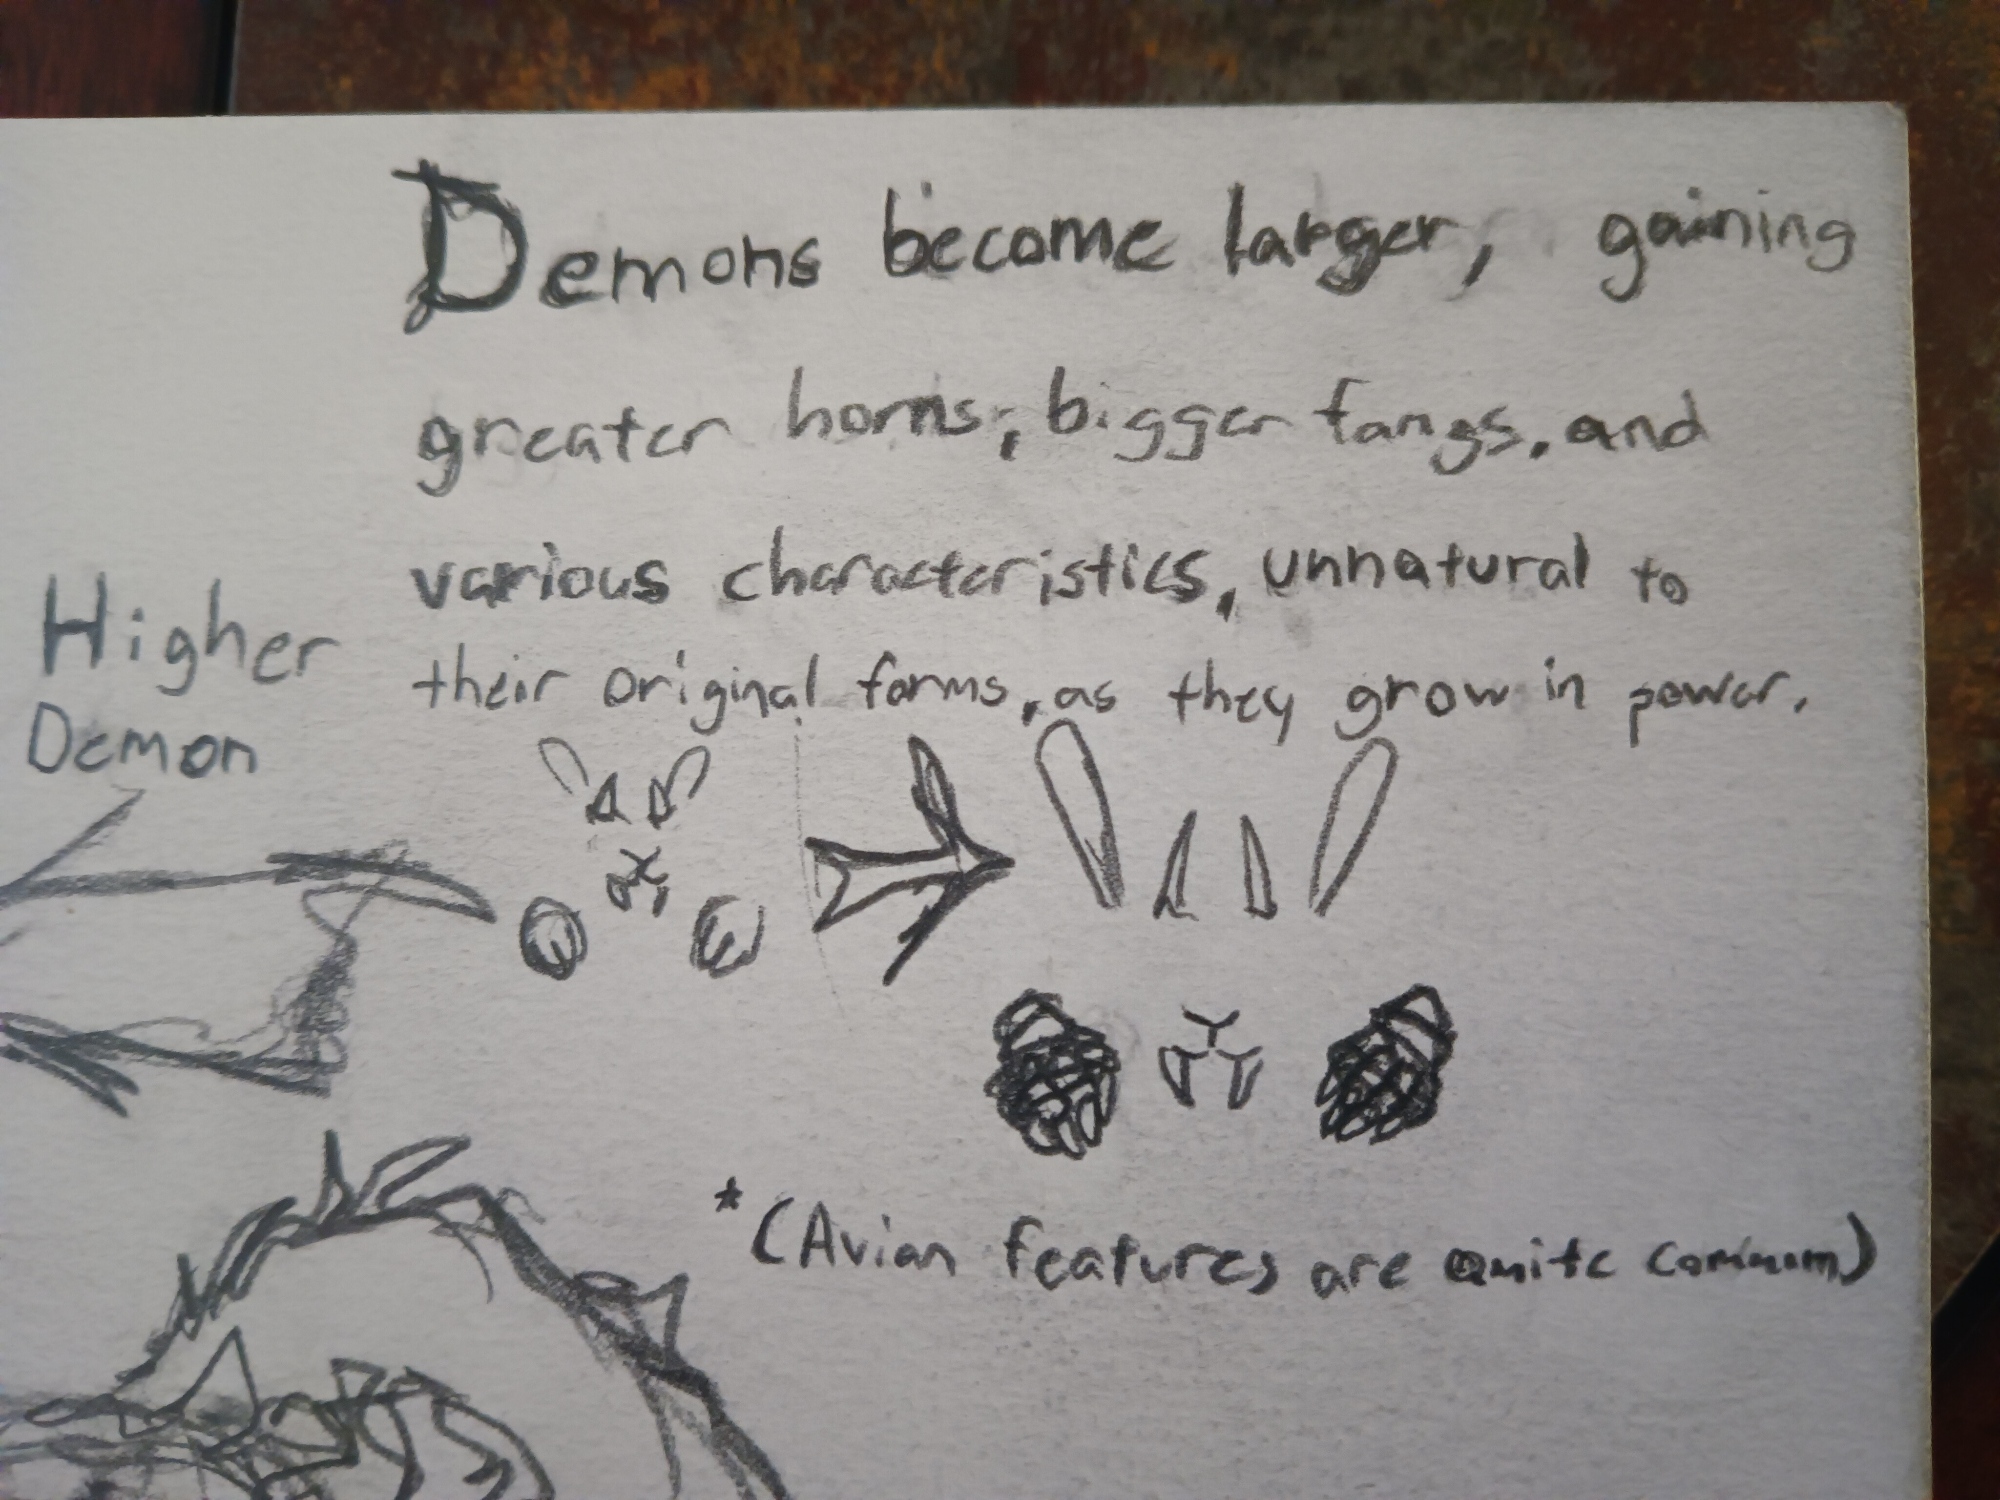 Demons become larger, gaining
greater horns, bigger fangs, and
various characteristics, unnatural to
their original forms, as they grow in power.
Higher
Demon
*(Avian features are Quite Common)